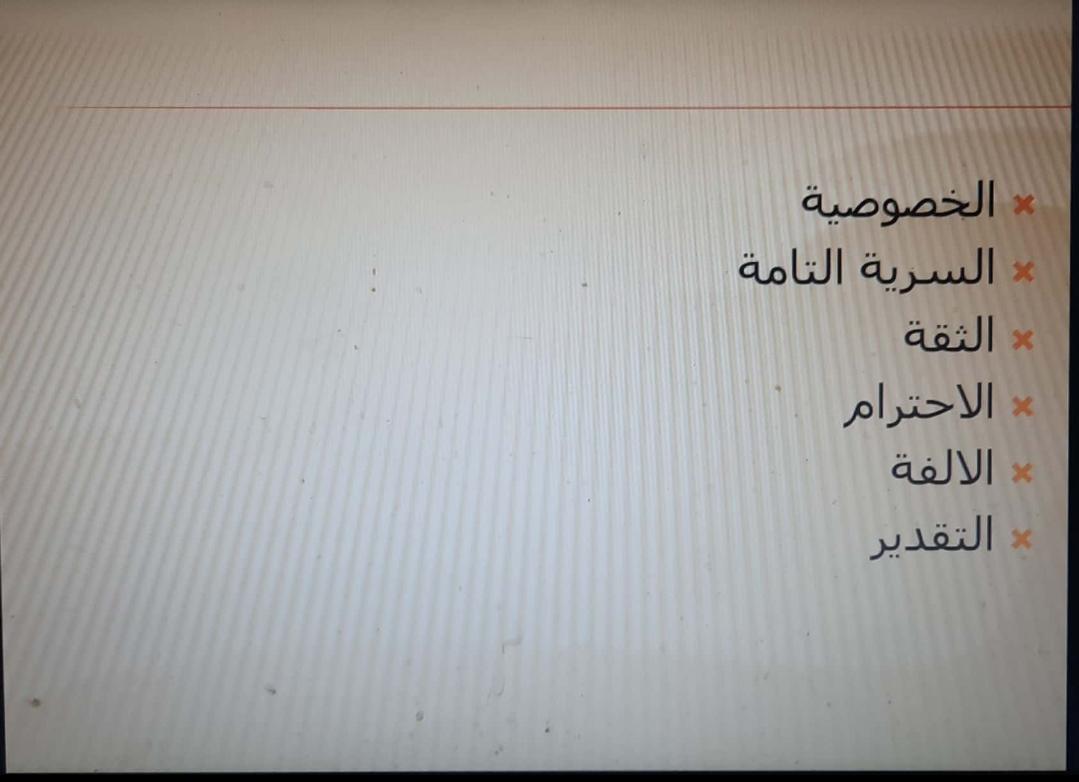 الخصوصية
السرية التامة
الثقة
الاحترام
الالفة
التقدير